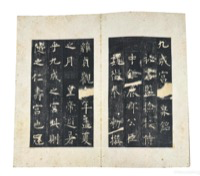 九成宮醴泉銘
秘書監檢校侍
中鉅鹿郡公臣
魏徵奉勅撰
維貞觀年孟夏
之月皇帝避暑
乎九成之宮此則
隨之仁壽宮也